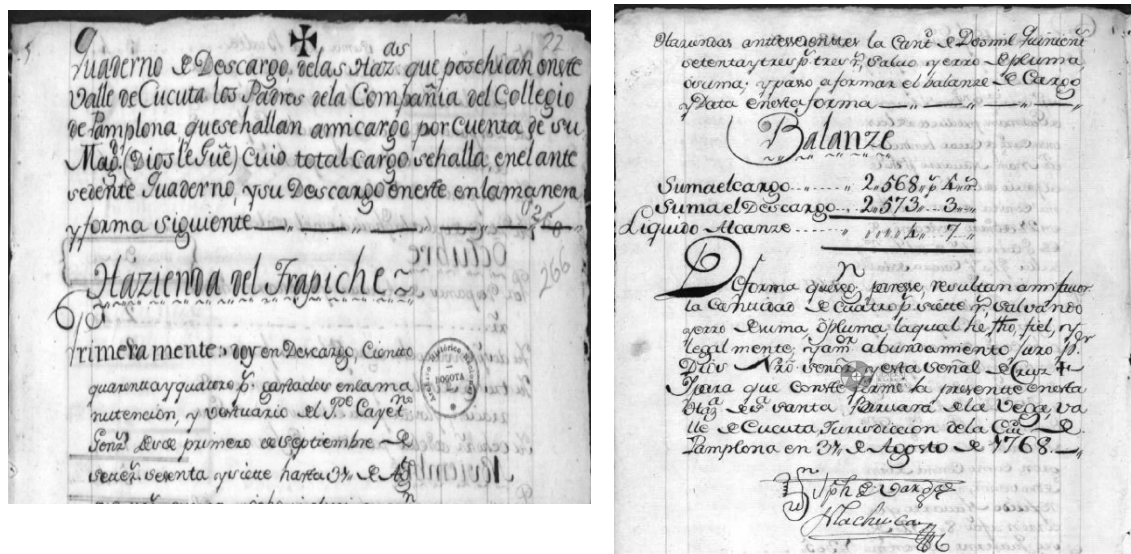 22
Quaderno de Descargo, de las Haz.das que posehian en este
Valle de Cucuta los Padres de la Compañia del Collegio
de Pamplona que se hallan a mi cargo por Cuenta de su
Mag.d (Dios le Gũe) Cuio total Cargo se halla, en el ante
sedente Quaderno, y su Descargo en este, en la manera
y forma siguiente
Hazienda del Trapiche
266
Primeramente: doy en Descargo, Ciento
quarenta y quatro p.s gastados en la ma
nutencion, y vestuario del P.e Cayet.no
Gonz.z desde primero de septiembre de
setez.s sesenta y siete hasta 31, de Ag.to
ARCHIVO HISTORICO
BOGOTA
Haziendas antesedentes la Cant.d de Dos mil quinient.s
setenta y tres p.s tres r.s, salvo yerro de pluma,
ó suma; y paso a formar el balanze de Cargo
y Data en esta forma
Balanze
Suma el cargo 2,,568,, p.s 4 r.s
Suma el Descargo 2,,573,, 3
Liquido Alcanze 4,, 7,,
De forma que seg.n parese, resultan a mi favor
la Cantidad de Quatro p.s y siete r.s, salvando
yerro de suma, ô pluma la qual he fho, fiel, y
legilmente, y a m.or abundamiento Juro p.r
Dios Nrõ señor y esta señal de Cruz +
Y para que Conste firmé la presente en esta
Haz.da de S.ta Barvara de la Vega, va
lle de Cucuta Jurisdiccion de la Ciu.d de
Pamplona en 31, de Agosto de 1768.
Jph de Vargas
Machuca